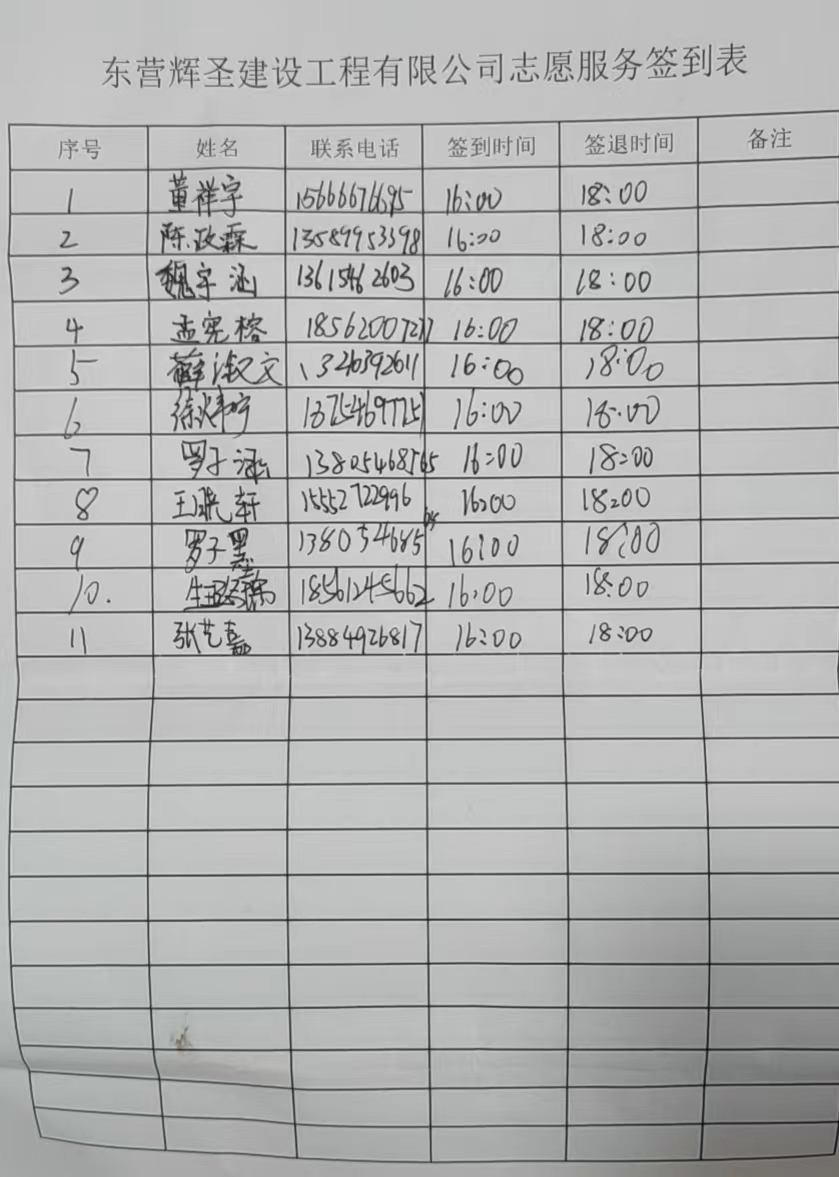 东营辉圣建设工程有限公司志愿服务签到表
序号 姓名 联系电话 签到时间 签退时间 备注
1 董祥宇 15666676695 16:00 18:00
2 陈政霖 13589953398 16:00 18:00
3 魏宇涵 16:00 18:00
4 孟宪榕 16:00 18:00
5 薛淑文 16:00 18:00
6 16:00 18:00
7 罗子涵 16:00 18:00
8 15552722996 16:00 18:00
9 罗子墨 16:00 18:00
10. 18561245662 16:00 18:00
11 张艺嘉 13884926817 16:00 18:00